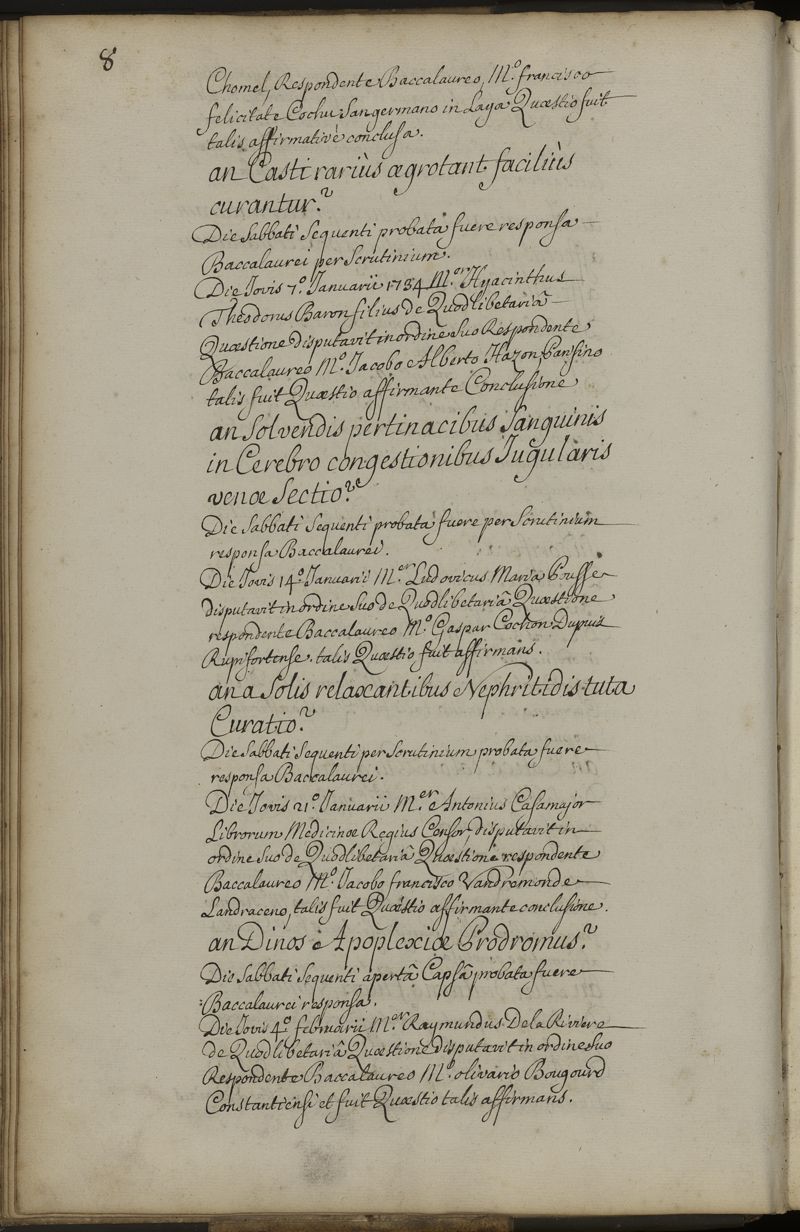 8
Chomel, Respondente Baccalaureo, M.o francisco
felicitate Cochu Sangermano in Laya Quæstio fuit
talis affirmativè conclusa.
an Casti rariùs ægrotant faciliùs
curantur?
Die Sabbati Sequenti probata fuere responsa
Baccalaurei per Scrutinium.
Die Jovis 7.o Januarii 1734 M.er Hyacinthus
Theodorus Baron filius de Quodlibetariâ
Quæstione disputavit in ordine Suo Respondente
Baccalaureo M.o Jacobo Alberto Hazon Parisino
talis fuit Quæstio affirmante Conclusione
an Solvendis pertinacibus Sanguinis
in Cerebro congestionibus Jugularis
venæ Sectio?
Die Sabbati Sequenti probata fuere per Scrutinium
responsa Baccalaurei.
Die Jovis 14.o Januarii M.er Ludovicus Maria Pousse
disputavit in ordine Suo de Quodlibetariâ Quæstione
respondente Baccalaureo M.o Gaspar Cochon Dupuis
Rupifortense. talis Quæstio fuit affirmans.
an a Solis relaxantibus Nephritidis tuta
Curatio?
Die Sabbati Sequenti per Scrutinium probata fuere
responsa Baccalaurei.
Die Jovis 21.o Januarii M.er Antonius Casamajor
Librorum Medicinæ Regius Censor disputavit in
ordine Suo de Quodlibetariâ Quæstione respondente
Baccalaureo M.o Jacobo francisco Vandremonde
Landraceno, talis fuit Quæstio affirmante conclusione.
an Dinos Apoplexiæ Prodromus?
Die Sabbati Sequenti apertâ Capsâ probata fuere
Baccalaurei responsa.
Die Jovis 4.o februarii M.er Raymundus De la Riviere
de Quodlibetariâ Quæstione disputavit in ordine Suo
Respondente Baccalaureo M.o olivario Bougourd
Constantiensi et fuit Quæstio talis affirmans.